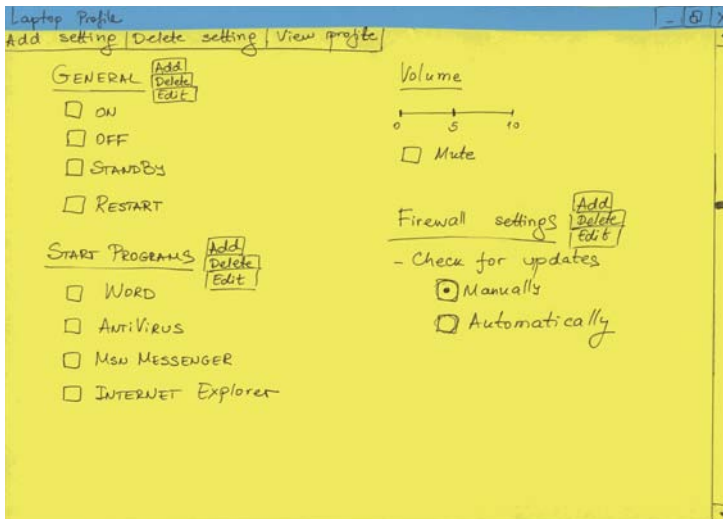 Laptop Profile
Add setting Delete setting View profile
GENERAL Add
Delete
Edit
ON
OFF
STANDBY
RESTART
START PROGRAMS Add
Delete
Edit
WORD
ANTIVIRUS
MSN MESSENGER
INTERNET Explorer
Volume
0 5 10
Mute
Firewall settings Add
Delete
Edit
- Check for updates
Manually
Automatically